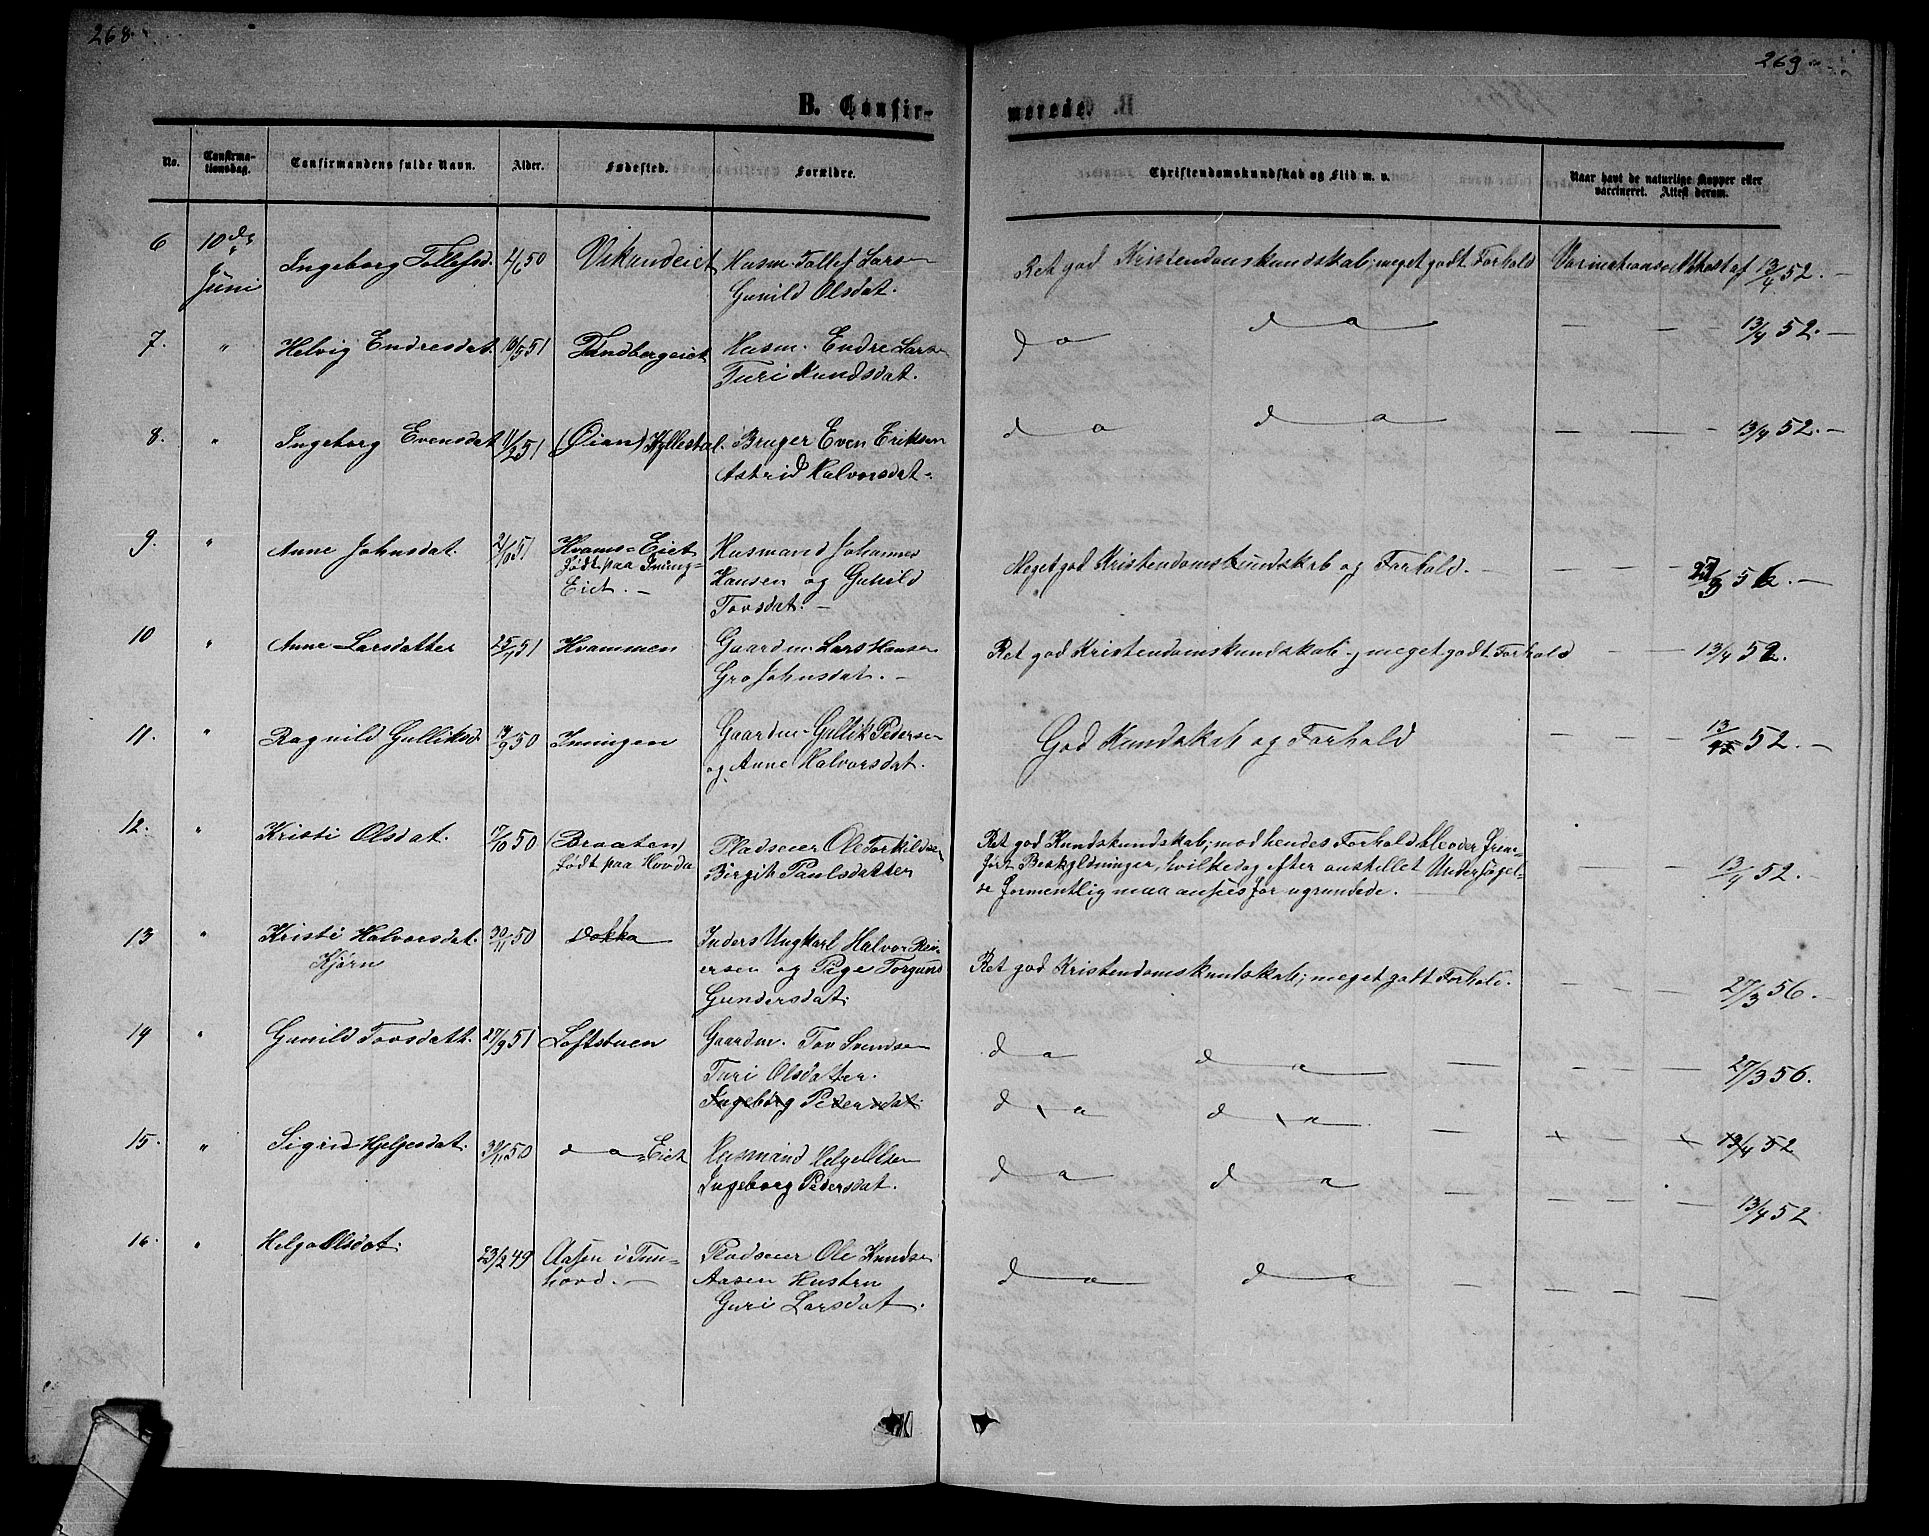 268.
269
B. Confir-
merede.
No.
Confirma-
tionsdag.
Confirmandens fulde Navn.
Alder.
Fødested.
Forældre.
Christendomskundskab og Flid m. v.
Naar havt de naturlige Kopper eller
vaccineret. Attest derom.
6 10de Ingeborg Tollefsd. 4/6 50 Husm. Tollef Larsen Ret god Kristendomskundskab; meget godt Forhold 13/4 52. —
Juni Gunild Olsdat.
7. " Helvig Endresdat. 16/5 51 Husm. Endre Larsen do do — — — 13/4 52. —
Turi Knudsdat.
8. " Ingeborg Evensdat 11/2 51 (Øian) Bruger Even Eriksen do do — — — 13/4 52. —
Astrid Halvorsdat.
9. " Anne Johnsdat. 51 Hvams-Eiet Husmand Johannes Meget god Kristendomskundskab og Forhold. — — — — 56. —
født paa Inning- Hansen og Gunild
Eiet. — Tovsdat. —
10 " Anne Larsdatter 25/1 51 Hvammen Gaardm. Lars Hansen Ret god Kristendomskundskab; meget godt Forhold — — 13/4 52.
Gro Johnsdat. —
11. " Ragnild Gulliksd. 19/9 50 Inningen Gaardm. Gullik Pedersen God Kundskab og Forhold — — — 13/4 52. —
og Anne Halvorsdat.
12. " Kristi Olsdat. 17/10 50 (Braaten) Pladseier Ole Torkildsen Ret god Kundskundskab; mod hendes Forhold blev der frem-
født paa Hovda Birgit Paulsdatter ført Beskyldninger, hvilke dog efter anstillet Undersøgel- — 13/4 52. —
se formentlig maa ansees for ugrundede.
13 " Kristi Halvorsdat. 30/11 50 Dokka Inders Ungkarl Halvor Rei-
Kjørn ersen og Pige Torgund Ret god Kristendomskundskab; meget godt Forhold. — — — 27/3 56. —
Gundersdat.
14 " Gunild Tovsdatt. 27/9 51 Loftstuen Gaardm. Tov Svendsen do do — — — 27/3 56.
Turi Olsdatter.
Ingeborg Pedersdat. do do — — — 13/4 52
15. " Sigrid Helgesdat. 30/11 50 do-Eiet Husmand Helge Olsen do do — — — 13/4 52
Ingeborg Pedersdat.
16. " Helga Olsdat. 23/2 49 Aasen i Tun- Pladseier Ole Knudsen do do — — — — —
hovd. — Aasen Hustru
Guri Larsdat.